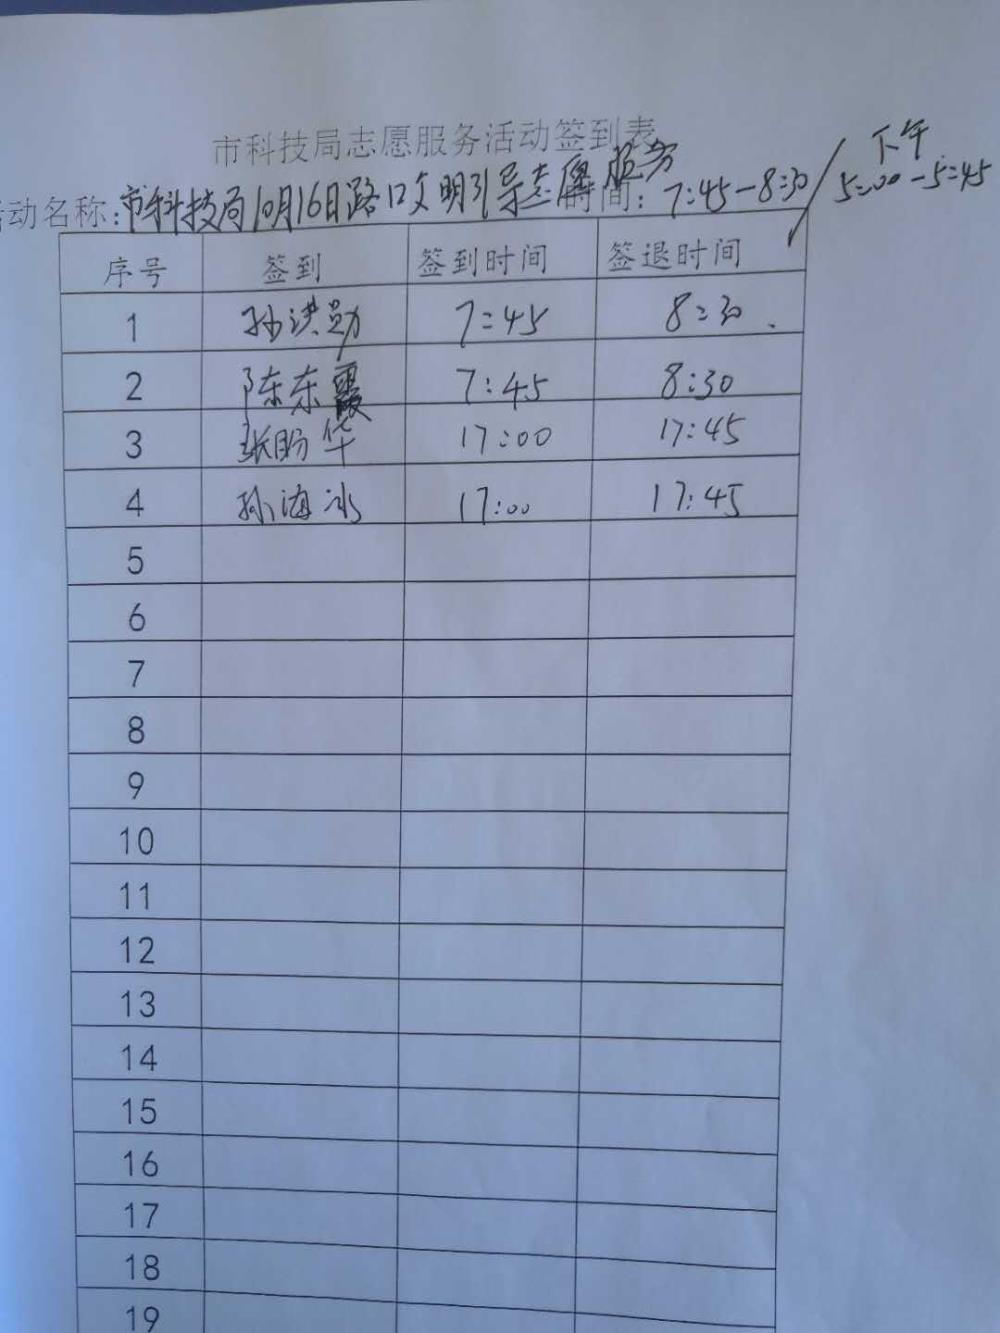 市科技局志愿服务活动签到表
活动名称:市科技局10月16日路口文明引导志愿服务 时间: 7:45-8:30/下午5:00-5:45
序号 签到 签到时间 签退时间
1 孙洪勋 7:45 8:30
2 陈东霞 7:45 8:30
3 张盼华 17:00 17:45
4 孙海冰 17:00 17:45
5
6
7
8
9
10
11
12
13
14
15
16
17
18
19